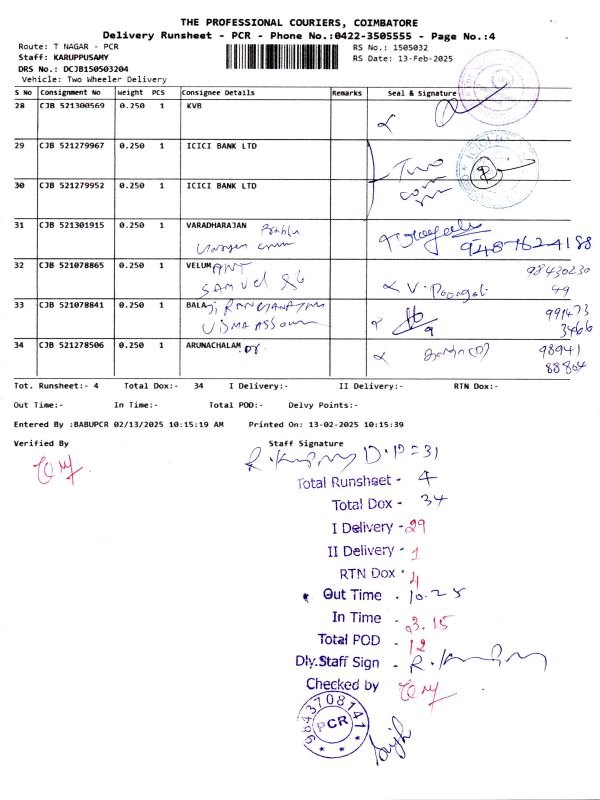 THE PROFESSIONAL COURIERS, COIMBATORE
Delivery Runsheet - PCR - Phone No.:0422-3505555 - Page No.:4
Route: T NAGAR - PCR
RS No.: 1505032
Staff: KARUPPUSAMY
RS Date: 13-Feb-2025
DRS No.: DCJB150503204
Vehicle: Two Wheeler Delivery
S No Consignment No Weight PCS Consignee Details Remarks Seal & Signature
28 CJB 521300569 0.250 1 KVB
29 CJB 521279967 0.250 1 ICICI BANK LTD
Two
30 CJB 521279952 0.250 1 ICICI BANK LTD
31 CJB 521301915 0.250 1 VARADHARAJAN Prabhu
9487624188
32 CJB 521078865 0.250 1 VELUMANI 98430230
SAMUEL 49
33 CJB 521078841 0.250 1 BALAJI RANGANATHAN 991473
3466
34 CJB 521278506 0.250 1 ARUNACHALAM .or. 98941
88804
Tot. Runsheet:- 4 Total Dox:- 34 I Delivery:- II Delivery:- RTN Dox:-
Out Time:- In Time:- Total POD:- Delvy Points:-
Entered By :BABUPCR 02/13/2025 10:15:19 AM Printed On: 13-02-2025 10:15:39
Verified By Staff Signature
D.P = 31
Total Runsheet - 4
Total Dox - 34
I Delivery - 29
II Delivery - 1
RTN Dox - 4
Out Time - 10.25
In Time - 3.15
Total POD - 12
Dly.Staff Sign -
Checked by
9843708141
PCR